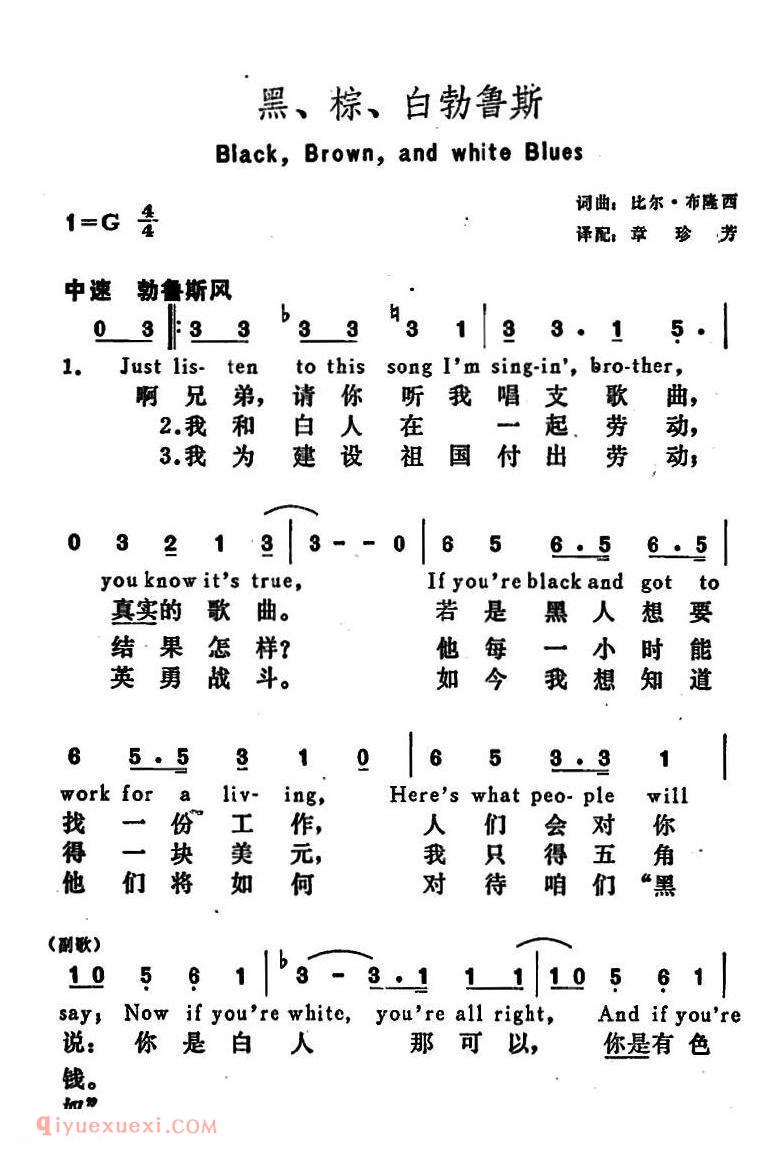 黑、棕、白勃鲁斯
Black, Brown, and white Blues
词曲：比尔·布隆西
1=G 4/4
译配：章珍芳
中速 勃鲁斯风
0 3 ‖: 3 3 ♭3 3 ♮3 1 | 3 3 · 1 5 · |
1. Just lis- ten to this song I'm sing-in', bro-ther,
啊兄弟，请你听我唱支歌曲，
2.我和白人在一起劳动，
3.我为建设祖国付出劳动；
0 3 2 1 3 | 3 - - 0 | 6 5 6 · 5 6 · 5 |
you know it's true, If you're black and got to
真实的歌曲。 若是黑人想要
结果怎样？ 他每一小时能
英勇战斗。 如今我想知道
6 5 · 5 3 1 0 | 6 5 3 · 3 1 |
work for a liv- ing, Here's what peo- ple will
找一份工作， 人们会对你
得一块美元， 我只得五角
他们将如何 对待咱们“黑
(副歌)
1 0 5 6 1 | ♭3 - 3 · 1 1 1 | 1 0 5 6 1 |
say; Now if you're white, you're all right, And if you're
说：你是白人 那可以， 你是有色
钱。
如”
qiyuexuexi.com